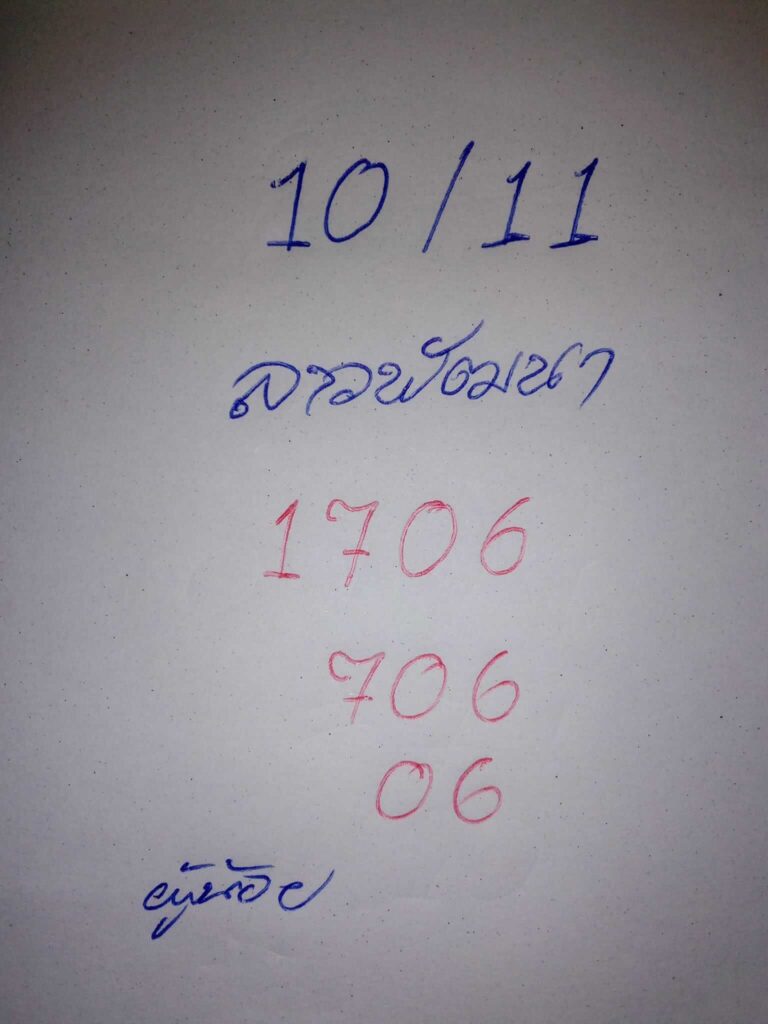 10/11
ลาวพัฒนา
1706
706
06